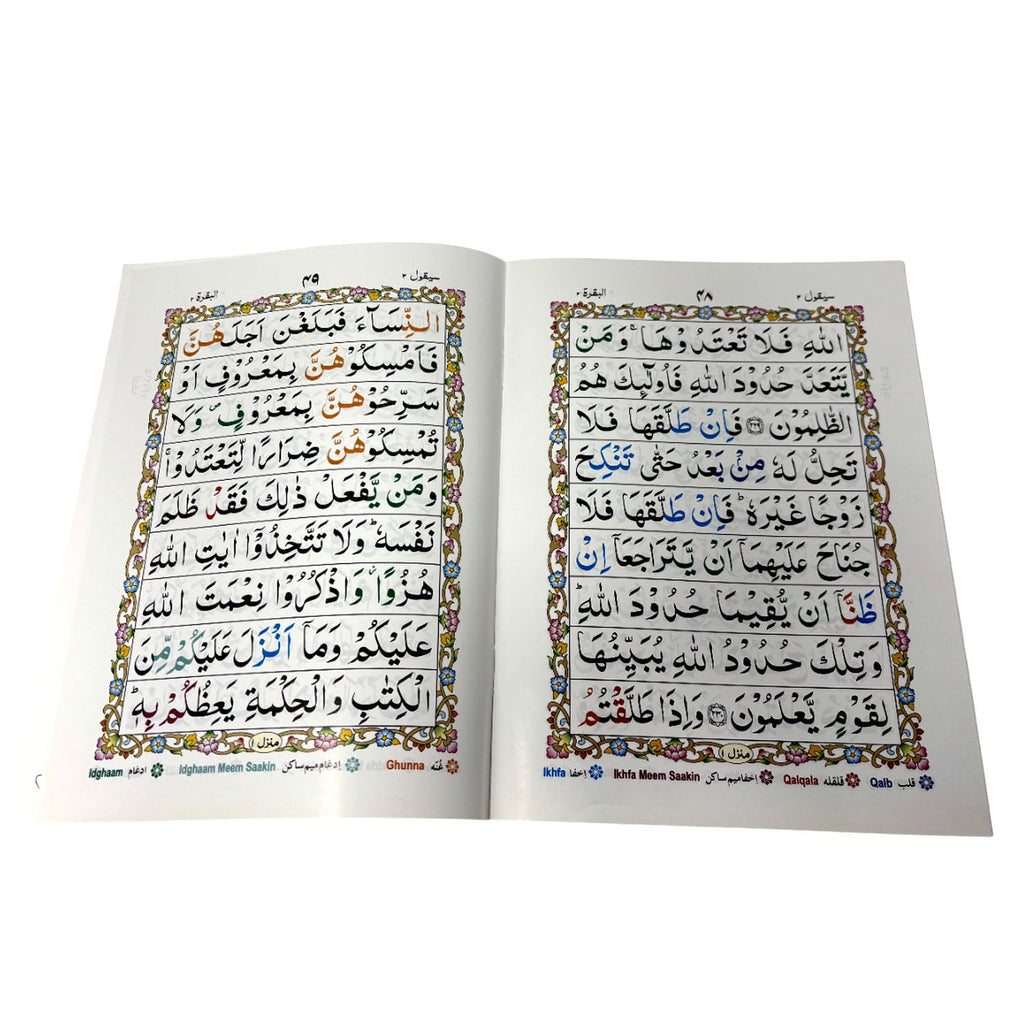 سيقول ٢ ۴۸ البقرة ٢
اللّٰهِ فَلَا تَعْتَدُوْهَا ۚ وَمَنْ
يَّتَعَدَّ حُدُوْدَ اللّٰهِ فَاُولٰٓئِكَ هُمُ
الظّٰلِمُوْنَ ﴿٢٢٩﴾ فَاِنْ طَلَّقَهَا فَلَا
تَحِلُّ لَهٗ مِنْۢ بَعْدُ حَتّٰى تَنْكِحَ
زَوْجًا غَيْرَهٗ ؕ فَاِنْ طَلَّقَهَا فَلَا
جُنَاحَ عَلَيْهِمَاۤ اَنْ يَّتَرَاجَعَاۤ اِنْ
ظَنَّاۤ اَنْ يُّقِيْمَا حُدُوْدَ اللّٰهِ ؕ
وَتِلْكَ حُدُوْدُ اللّٰهِ يُبَيِّنُهَا
لِقَوْمٍ يَّعْلَمُوْنَ ﴿٢٣٠﴾ وَاِذَا طَلَّقْتُمُ
منزل ١
قلب Qalb قلقله Qalqala اخفا میم ساکن Ikhfa Meem Saakin اخفا Ikhfa
سيقول ٢ ۴۹ البقرة ٢
النِّسَآءَ فَبَلَغْنَ اَجَلَهُنَّ
فَاَمْسِكُوْهُنَّ بِمَعْرُوْفٍ اَوْ
سَرِّحُوْهُنَّ بِمَعْرُوْفٍ ۪ وَّلَا
تُمْسِكُوْهُنَّ ضِرَارًا لِّتَعْتَدُوْا ۚ
وَمَنْ يَّفْعَلْ ذٰلِكَ فَقَدْ ظَلَمَ
نَفْسَهٗ ؕ وَلَا تَتَّخِذُوْۤا اٰيٰتِ اللّٰهِ
هُزُوًا ؗ وَّاذْكُرُوْا نِعْمَتَ اللّٰهِ
عَلَيْكُمْ وَمَاۤ اَنْزَلَ عَلَيْكُمْ مِّنَ
الْكِتٰبِ وَالْحِكْمَةِ يَعِظُكُمْ بِهٖ ؕ
منزل ١
غُنّه Ghunna اِدغام میم ساکن Idghaam Meem Saakin ادغام Idghaam